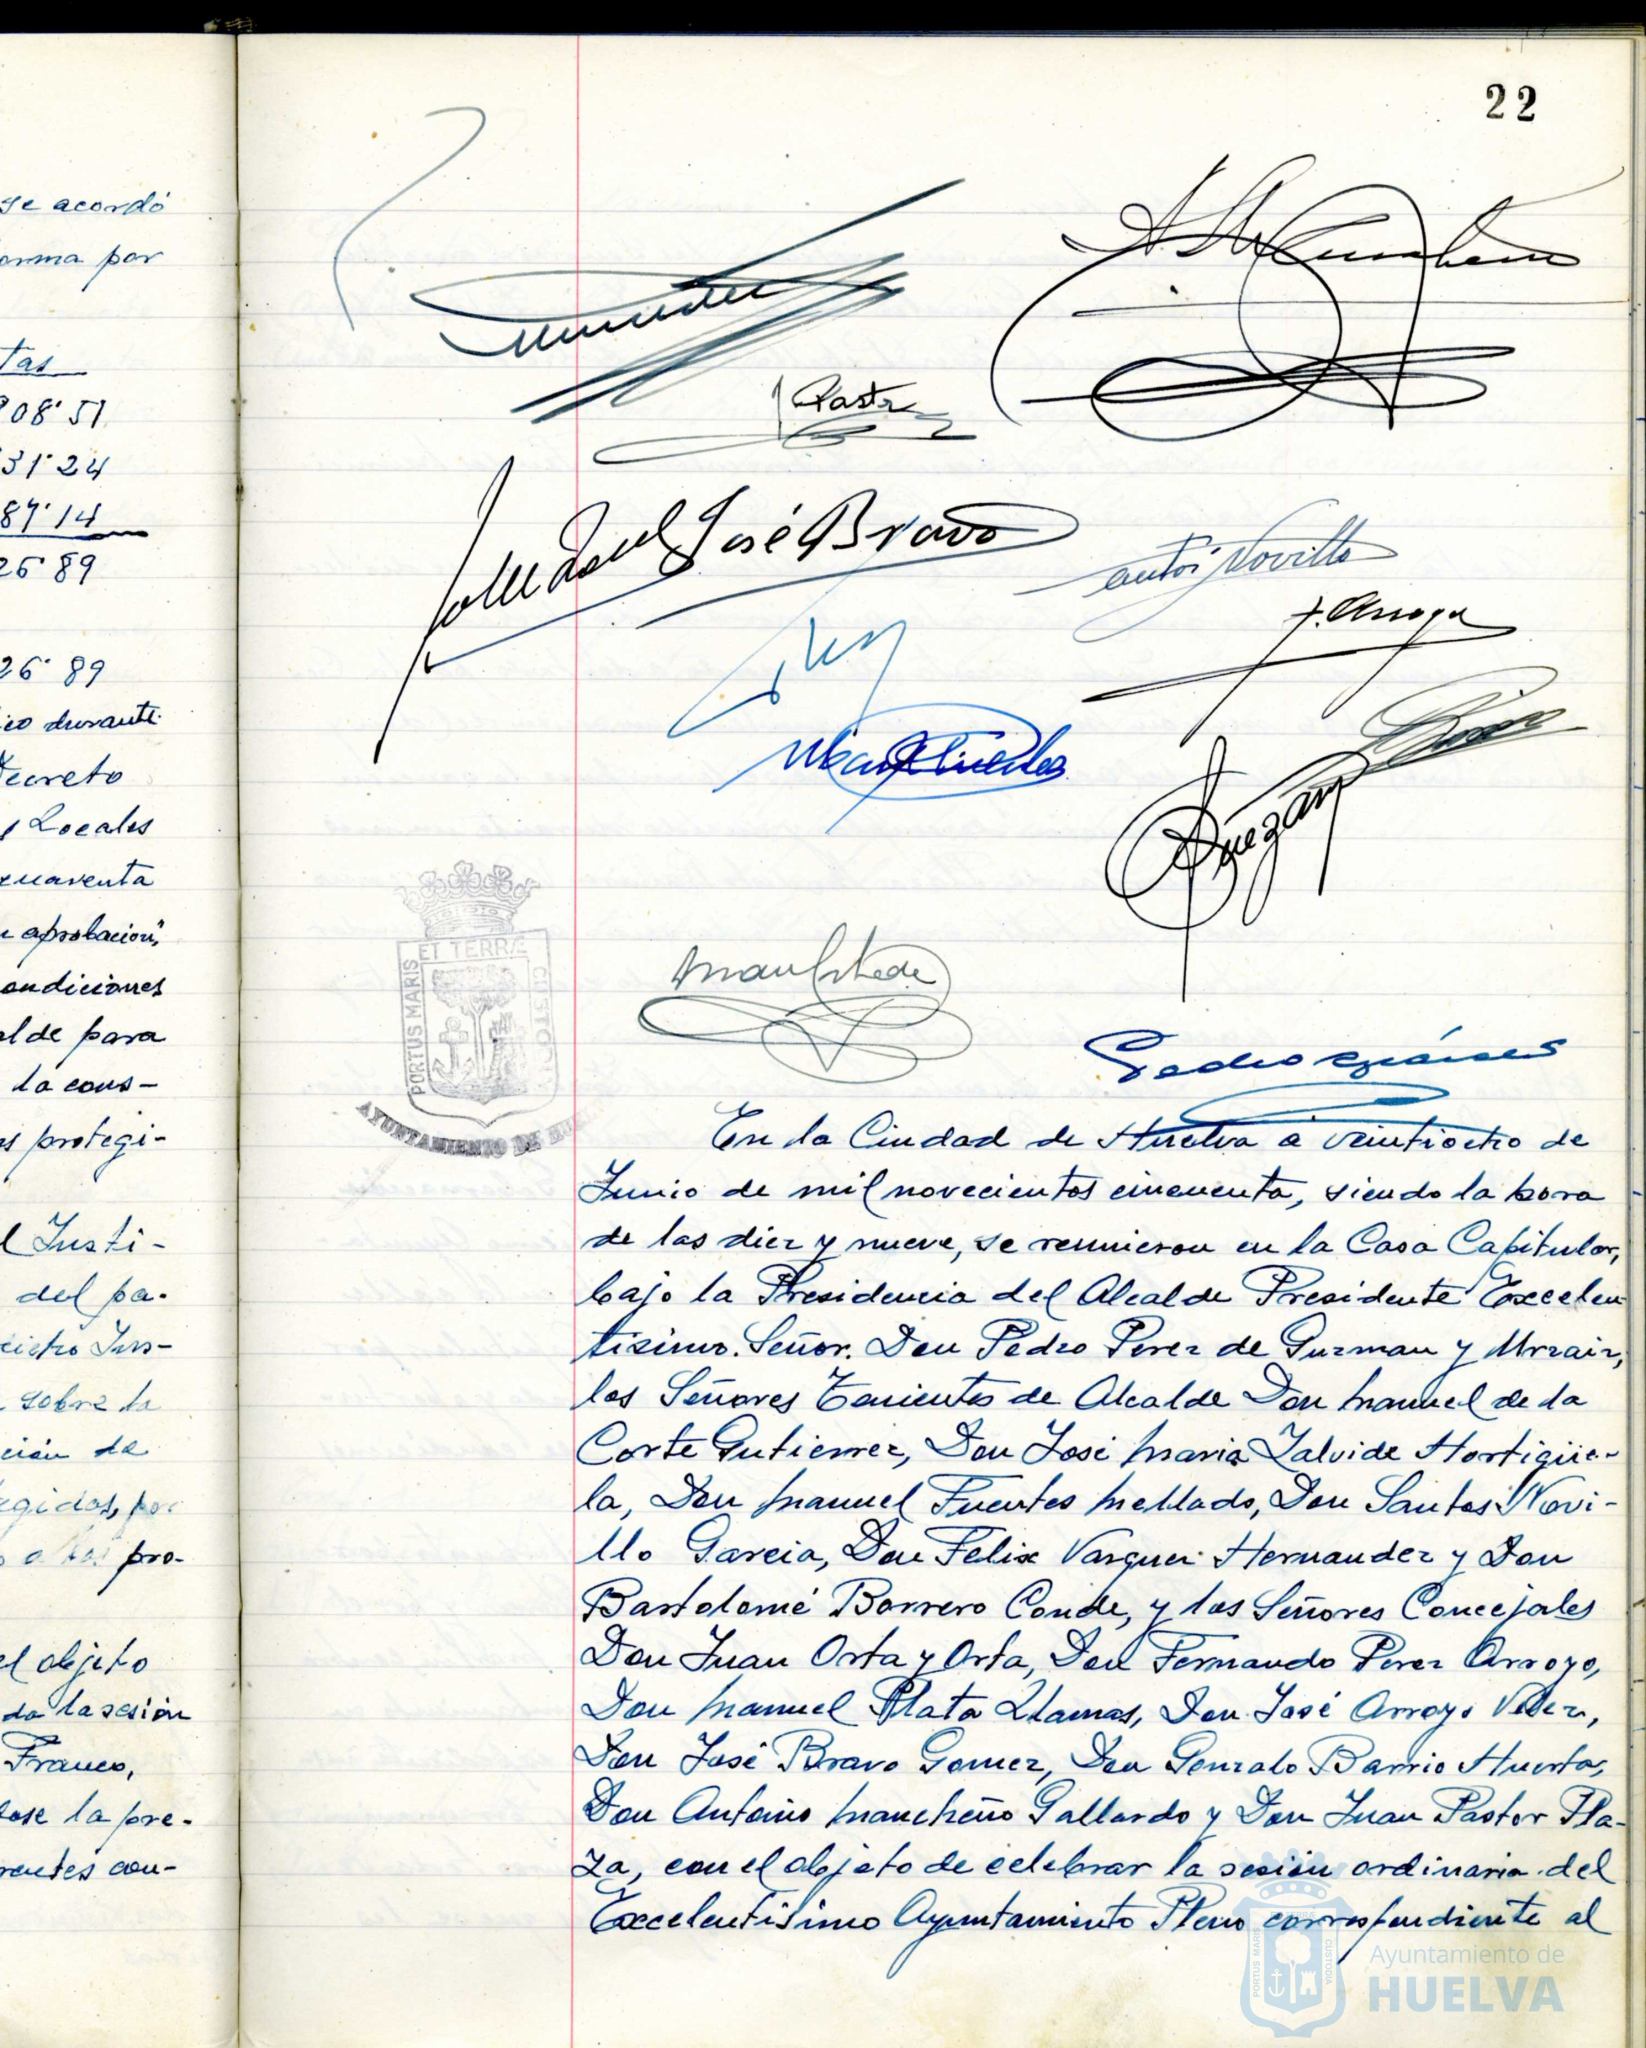 se acordó
orma por
tas
908'51
31'24
87'14
26'89
26'89
ico durante
Decreto
s Locales
cuarenta
aprobación",
condiciones
alde para
la cons-
protegi-
l Insti-
del pa-
sobre la
ción de
egidos, por
pro-
el objeto
da la sesión
Franco,
dose la pre-
rentes con-
22
Pastor
José Bravo
Novillo
F. Arroyo
PORTUS MARIS ET TERRÆ CUSTODIA
AYUNTAMIENTO DE HUELVA
En la Ciudad de Huelva a veintiocho de
Junio de mil novecientos cincuenta, siendo la hora
de las diez y nueve, se reunieron en la Casa Capitular,
bajo la Presidencia del Alcalde Presidente Excelen
tisimo. Señor. Don Pedro Perez de Guzman y Urzaiz,
los Señores Tenientes de Alcalde Don Manuel de la
Corte Gutierrez, Don José Maria Zalvide Hortigüe-
la, Don Manuel Fuentes Mellado, Don Santos Novi-
llo Garcia, Don Felix Vazquez Hernandez y Don
Bartolomé Borrero Conde, y los Señores Concejales
Don Juan Orta y Orta, Don Fernando Perez Arroyo,
Don Manuel Plata Llamas, Don José Arroyo Velez,
Don José Bravo Gomez, Don Gonzalo Barrio Huerta,
Don Antonio Mancheño Gallardo y Don Juan Pastor Pla-
za, con el objeto de celebrar la sesión ordinaria del
Excelentisimo Ayuntamiento Pleno correspondiente al
PORTUS MARIS ET TERRÆ CUSTODIA
Ayuntamiento de
HUELVA